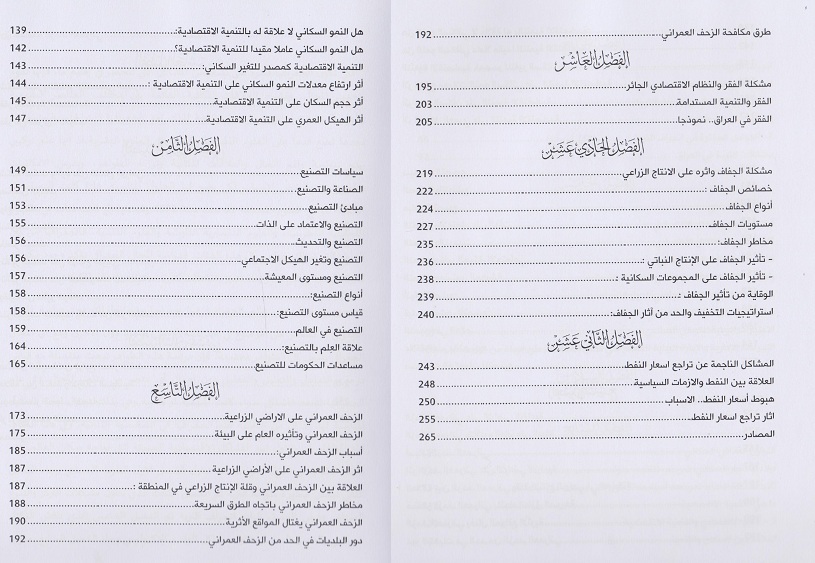 هل النمو السكاني لا علاقة له بالتنمية الاقتصادية:.....139
هل النمو السكاني عاملا مقيدا للتنمية الاقتصادية؟.....142
التنمية الاقتصادية كمصدر للتغير السكاني:.....143
أثر ارتفاع معدلات النمو السكاني على التنمية الاقتصادية :.....144
أثر حجم السكان على التنمية الاقتصادية.....145
أثر الهيكل العمري على التنمية الاقتصادية:.....147
الفصل الثامن
سياسات التصنيع.....149
الصناعة والتصنيع.....151
مبادئ التصنيع.....153
التصنيع والاعتماد على الذات.....155
التصنيع والتحديث.....156
التصنيع وتغير الهيكل الاجتماعي.....156
التصنيع ومستوى المعيشة.....157
أنواع التصنيع:.....158
قياس مستوى التصنيع:.....158
التصنيع في العالم.....159
علاقة العلم بالتصنيع:.....164
مساعدات الحكومات للتصنيع.....165
الفصل التاسع
الزحف العمراني على الاراضي الزراعية.....173
الزحف العمراني وتأثيره العام على البيئة.....175
أسباب الزحف العمراني:.....185
اثر الزحف العمراني على الأراضي الزراعية.....187
العلاقة بين الزحف العمراني وقلة الإنتاج الزراعي في المنطقة :.....187
مخاطر الزحف العمراني باتجاه الطرق السريعة.....188
الزحف العمراني يغتال المواقع الأثرية.....190
دور البلديات في الحد من الزحف العمراني.....192
طرق مكافحة الزحف العمراني.....192
الفصل العاشر
مشكلة الفقر والنظام الاقتصادي الجائر.....195
الفقر والتنمية المستدامة.....203
الفقر في العراق.. نموذجا.....205
الفصل الحادي عشر
مشكلة الجفاف واثره على الانتاج الزراعي.....219
خصائص الجفاف :.....222
أنواع الجفاف.....224
مستويات الجفاف.....227
مخاطر الجفاف:.....235
- تأثير الجفاف على الإنتاج النباتي :.....236
- تأثير الجفاف على المجموعات السكانية :.....238
الوقاية من تأثير الجفاف :.....239
استراتيجيات التخفيف والحد من آثار الجفاف:.....240
الفصل الثاني عشر
المشاكل الناجمة عن تراجع اسعار النفط.....243
العلاقة بين النفط والازمات السياسية.....248
هبوط أسعار النفط.. الاسباب.....250
اثار تراجع اسعار النفط.....255
المصادر.....265